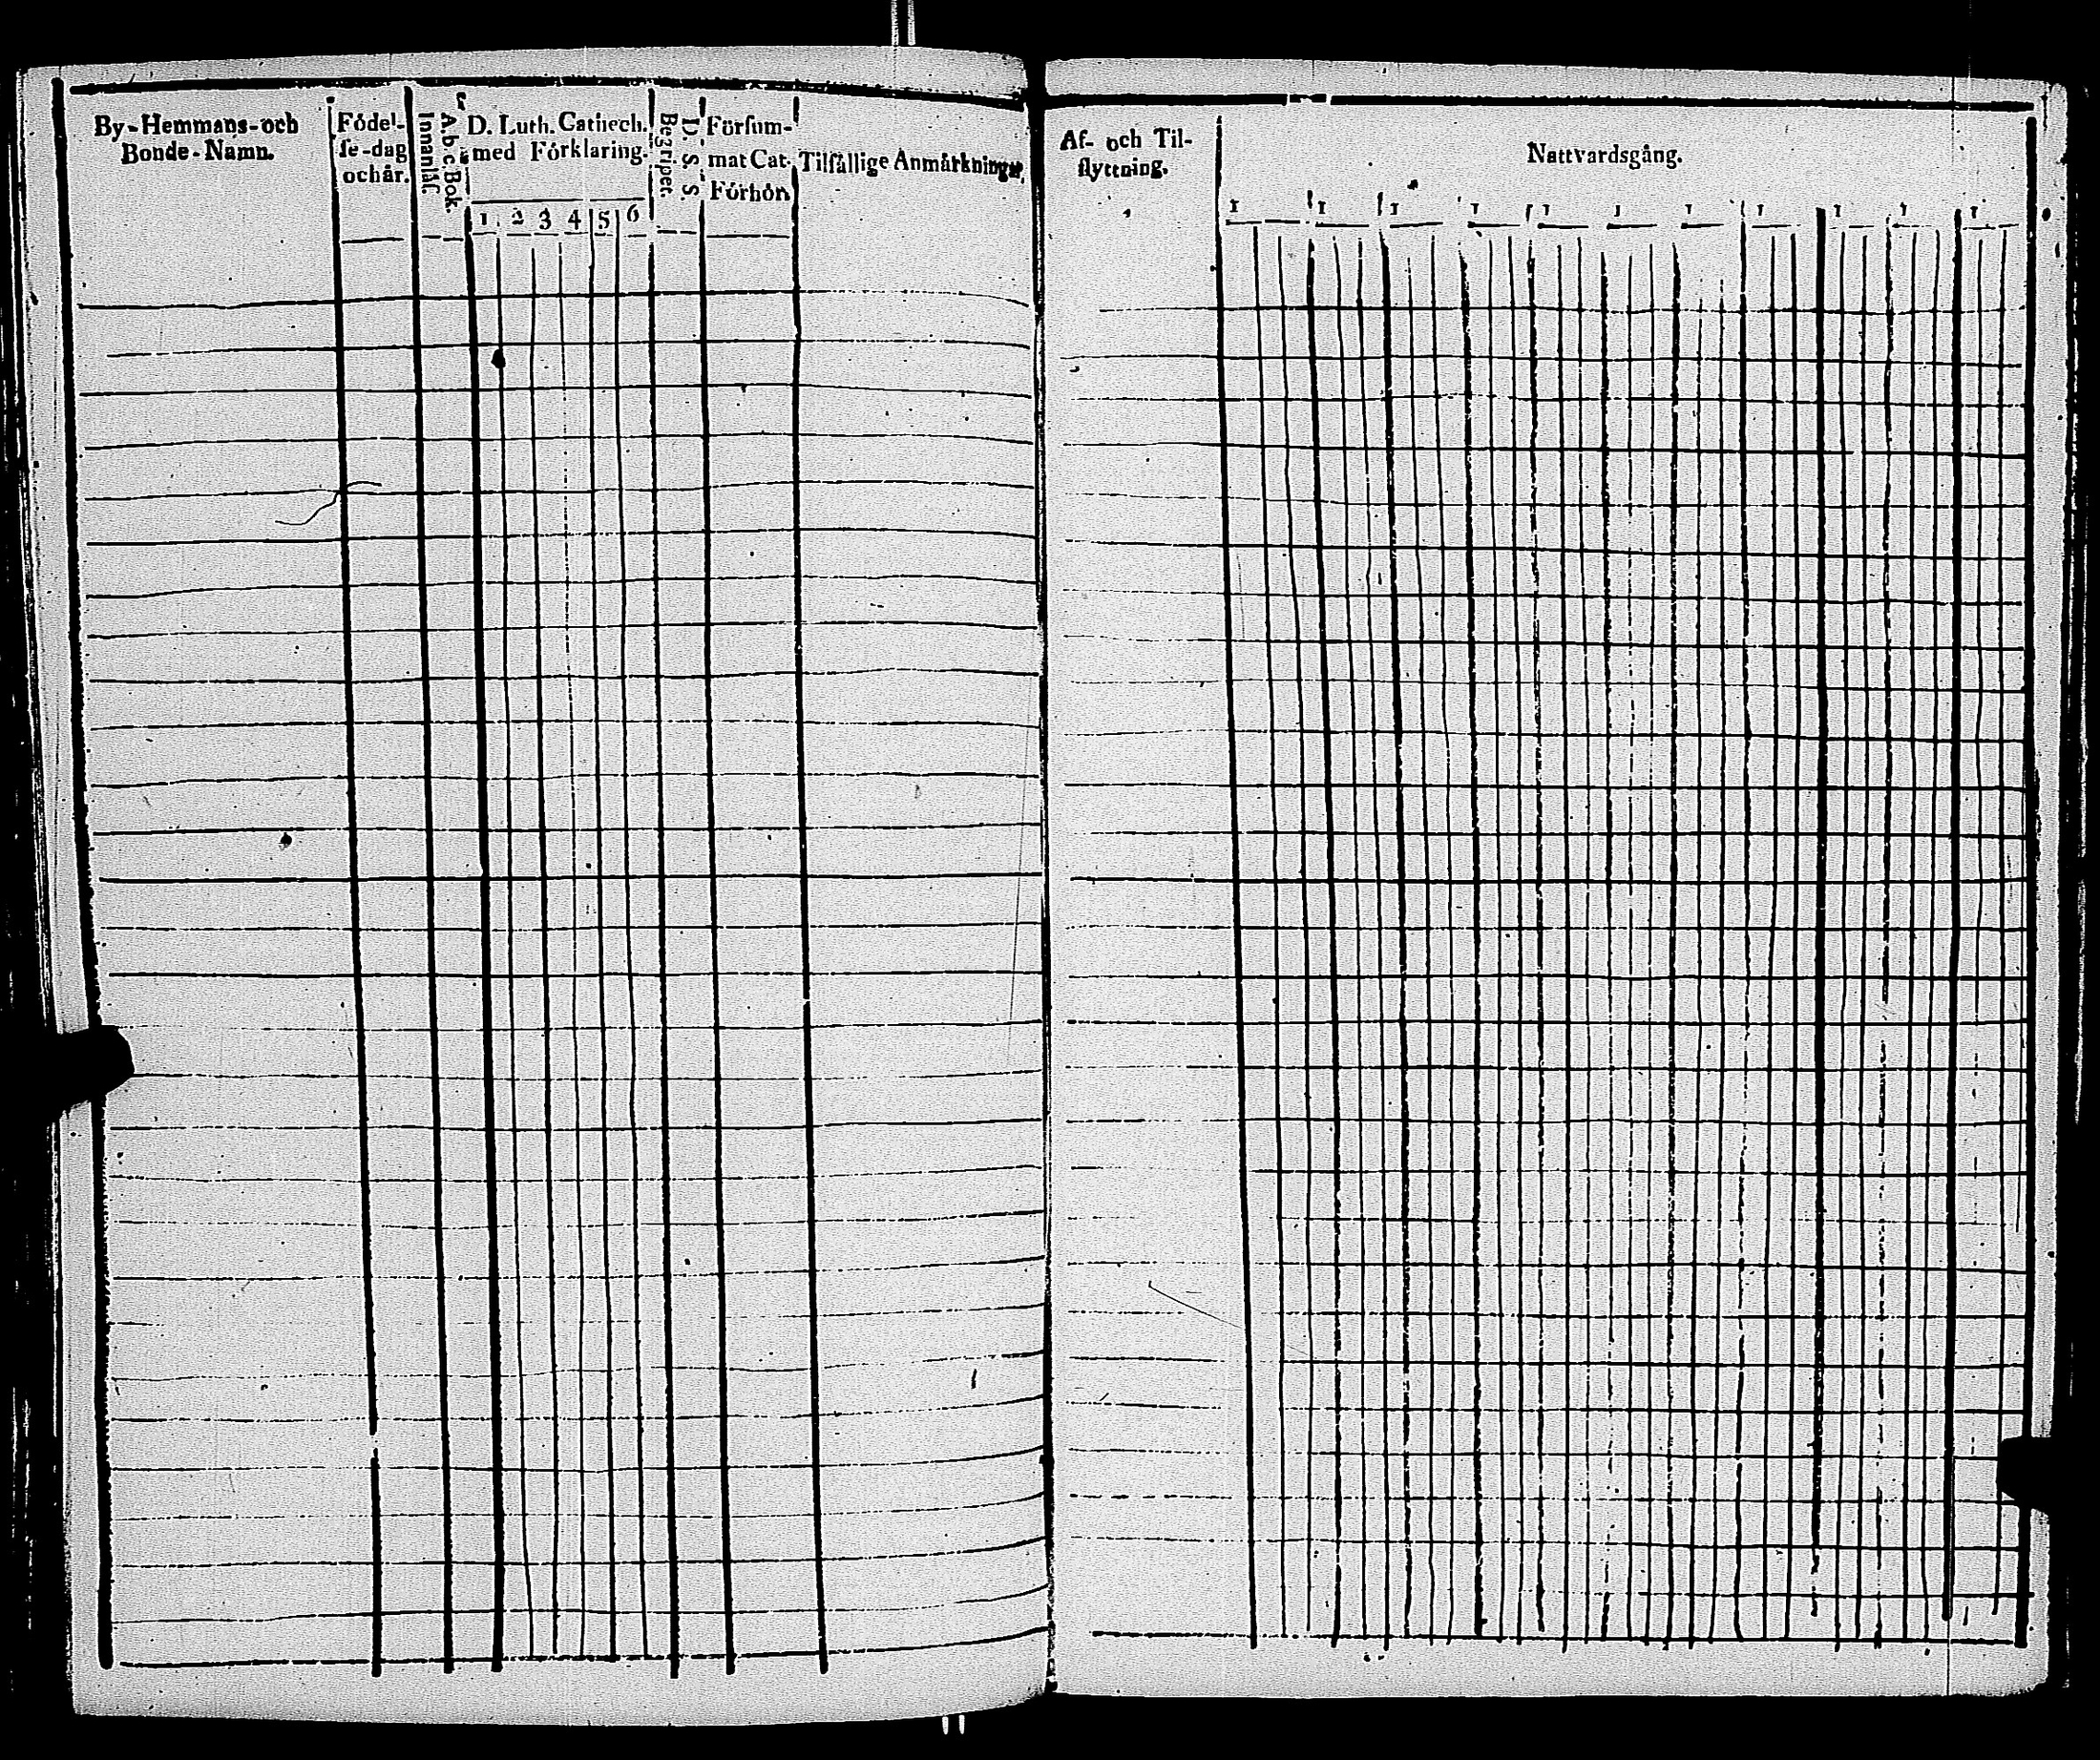 By-Hemmans-och
Bonde-Namn.
Födel-
se-dag
och år.
Innanläs.
A.b.c Bok.
D. Luth. Cathech.
med Förklaring.
1. 2 3 4 5 6
Begripet.
D. S. S.
Försum-
mat Cat.
Förhör
Tilfällige Anmärkningar.
Af- och Til-
flyttning.
Nattvardsgång.
1 1 1 1 1 1 1 1 1 1 1